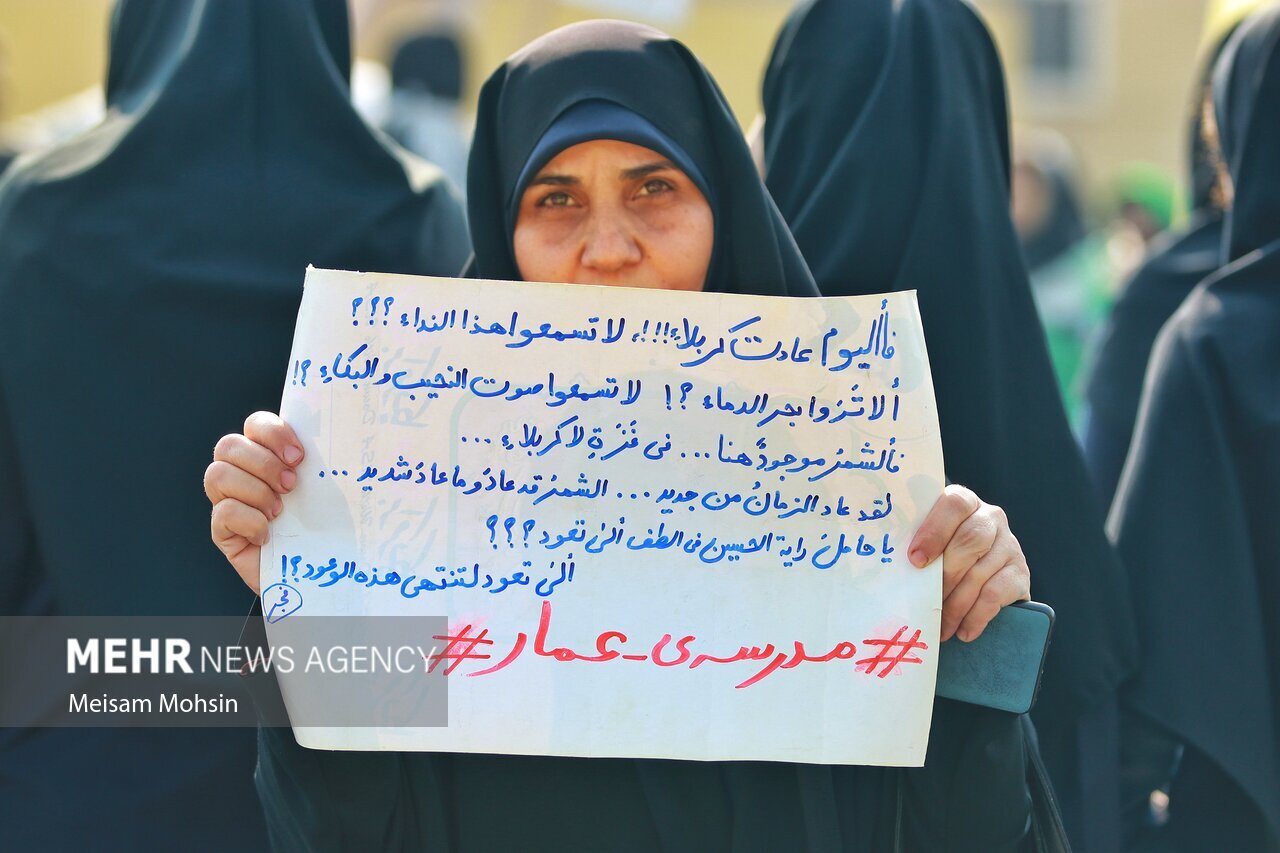 فأاليوم عادت كربلاء!!!، لا تسمعوا هذا النداء؟؟؟
ألا تَرَوا بحر الدماء؟! لا تسمعوا صوت النحيب والبكاءِ؟!
فألشمرُ موجودٌ هنا... فی غَزَةِ لا كربلاءِ...
لقد عاد الزمانُ من جدید... الشمرُ قد عادَ وما عادَ شدید...
یا حاملَ رایة الحسین فی الطف ألن تعود؟؟؟
ألن تعود لتنتهی هذه الوعود؟!
فجر
#مدرسه‌ی_عمار#
MEHR NEWS AGENCY
Meisam Mohsin